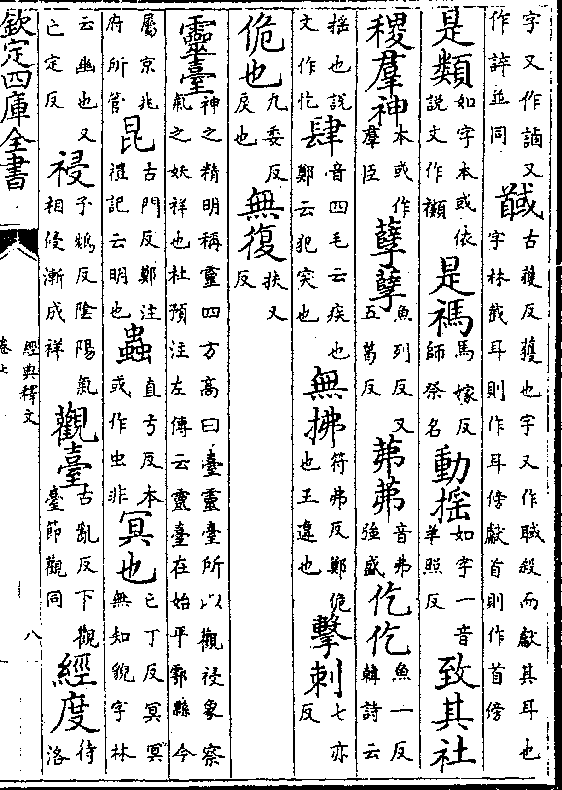 字又作誧又作誶並同馘古獲反獲也字又作聝殺而獻其耳也字林截耳則作耳傍獻首則作首傍
是類如字本或依說文作禷是禡馬嫁反師祭名動揺如字一音羊照反致其社
稷羣神本或作羣臣孽孽魚列反又五葛反茀茀音弗強盛仡仡魚一反韓詩云
揺也說文作忔肆音四毛云疾也鄭云犯突也無拂符弗反鄭佹也王違也擊刺七亦反
佹也九委反戾也無復扶又反
靈臺神之精明稱靈四方高曰臺靈臺所以觀祲象察氣之妖祥也杜預注左傳云靈臺在始平鄠縣今
屬京兆府所管昆古門反鄭注禮記云明也蟲直弓反本或作虫非冥也亡丁反冥冥無知貌字林
云幽也又亡定反祲子鴆反陰陽氣相侵漸成祥觀臺古亂反下觀臺節觀同經度待洛
欽定四庫全書
經典釋文
卷七
八